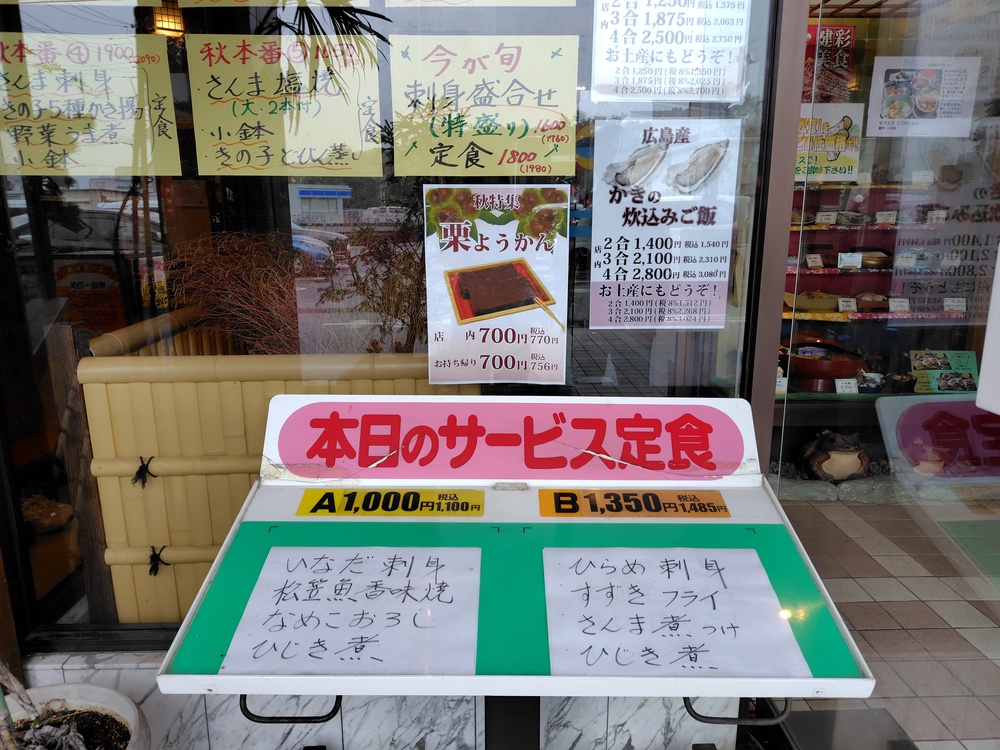 秋本番④ 1900 (2090)
さんま刺身
きの子5種かき揚
野菜うま煮
小鉢
定食
秋本番⑤
さんま塩焼
(大・2本付)
小鉢
きの子どびん蒸し
定食
今が旬
刺身盛合せ
(特盛り) 1600
(1760)
定食 1800
(1980)
2合 1,250円 税込 1,375円
店内 3合 1,875円 税込 2,063円
4合 2,500円 税込 2,750円
お土産にもどうぞ!
2合 1,250円 (税8%1,350円)
3合 1,875円 (税8%2,025円)
4合 2,500円 (税8%2,700円)
広島産
かきの
炊込みご飯
2合 1,400円 税込 1,540円
店内 3合 2,100円 税込 2,310円
4合 2,800円 税込 3,080円
お土産にもどうぞ!
2合 1,400円 (税8%1,512円)
3合 2,100円 (税8%2,268円)
4合 2,800円 (税8%3,024円)
秋特集
栗ようかん
店内 700円 税込770円
お持ち帰り 700円 税込756円
健彩美食
本日のサービス定食
A 1,000円 税込1,100円
B 1,350円 税込1,485円
いなだ刺身
松笠魚香味焼
なめこおろし
ひじき煮
ひらめ刺身
すずきフライ
さんま煮つけ
ひじき煮